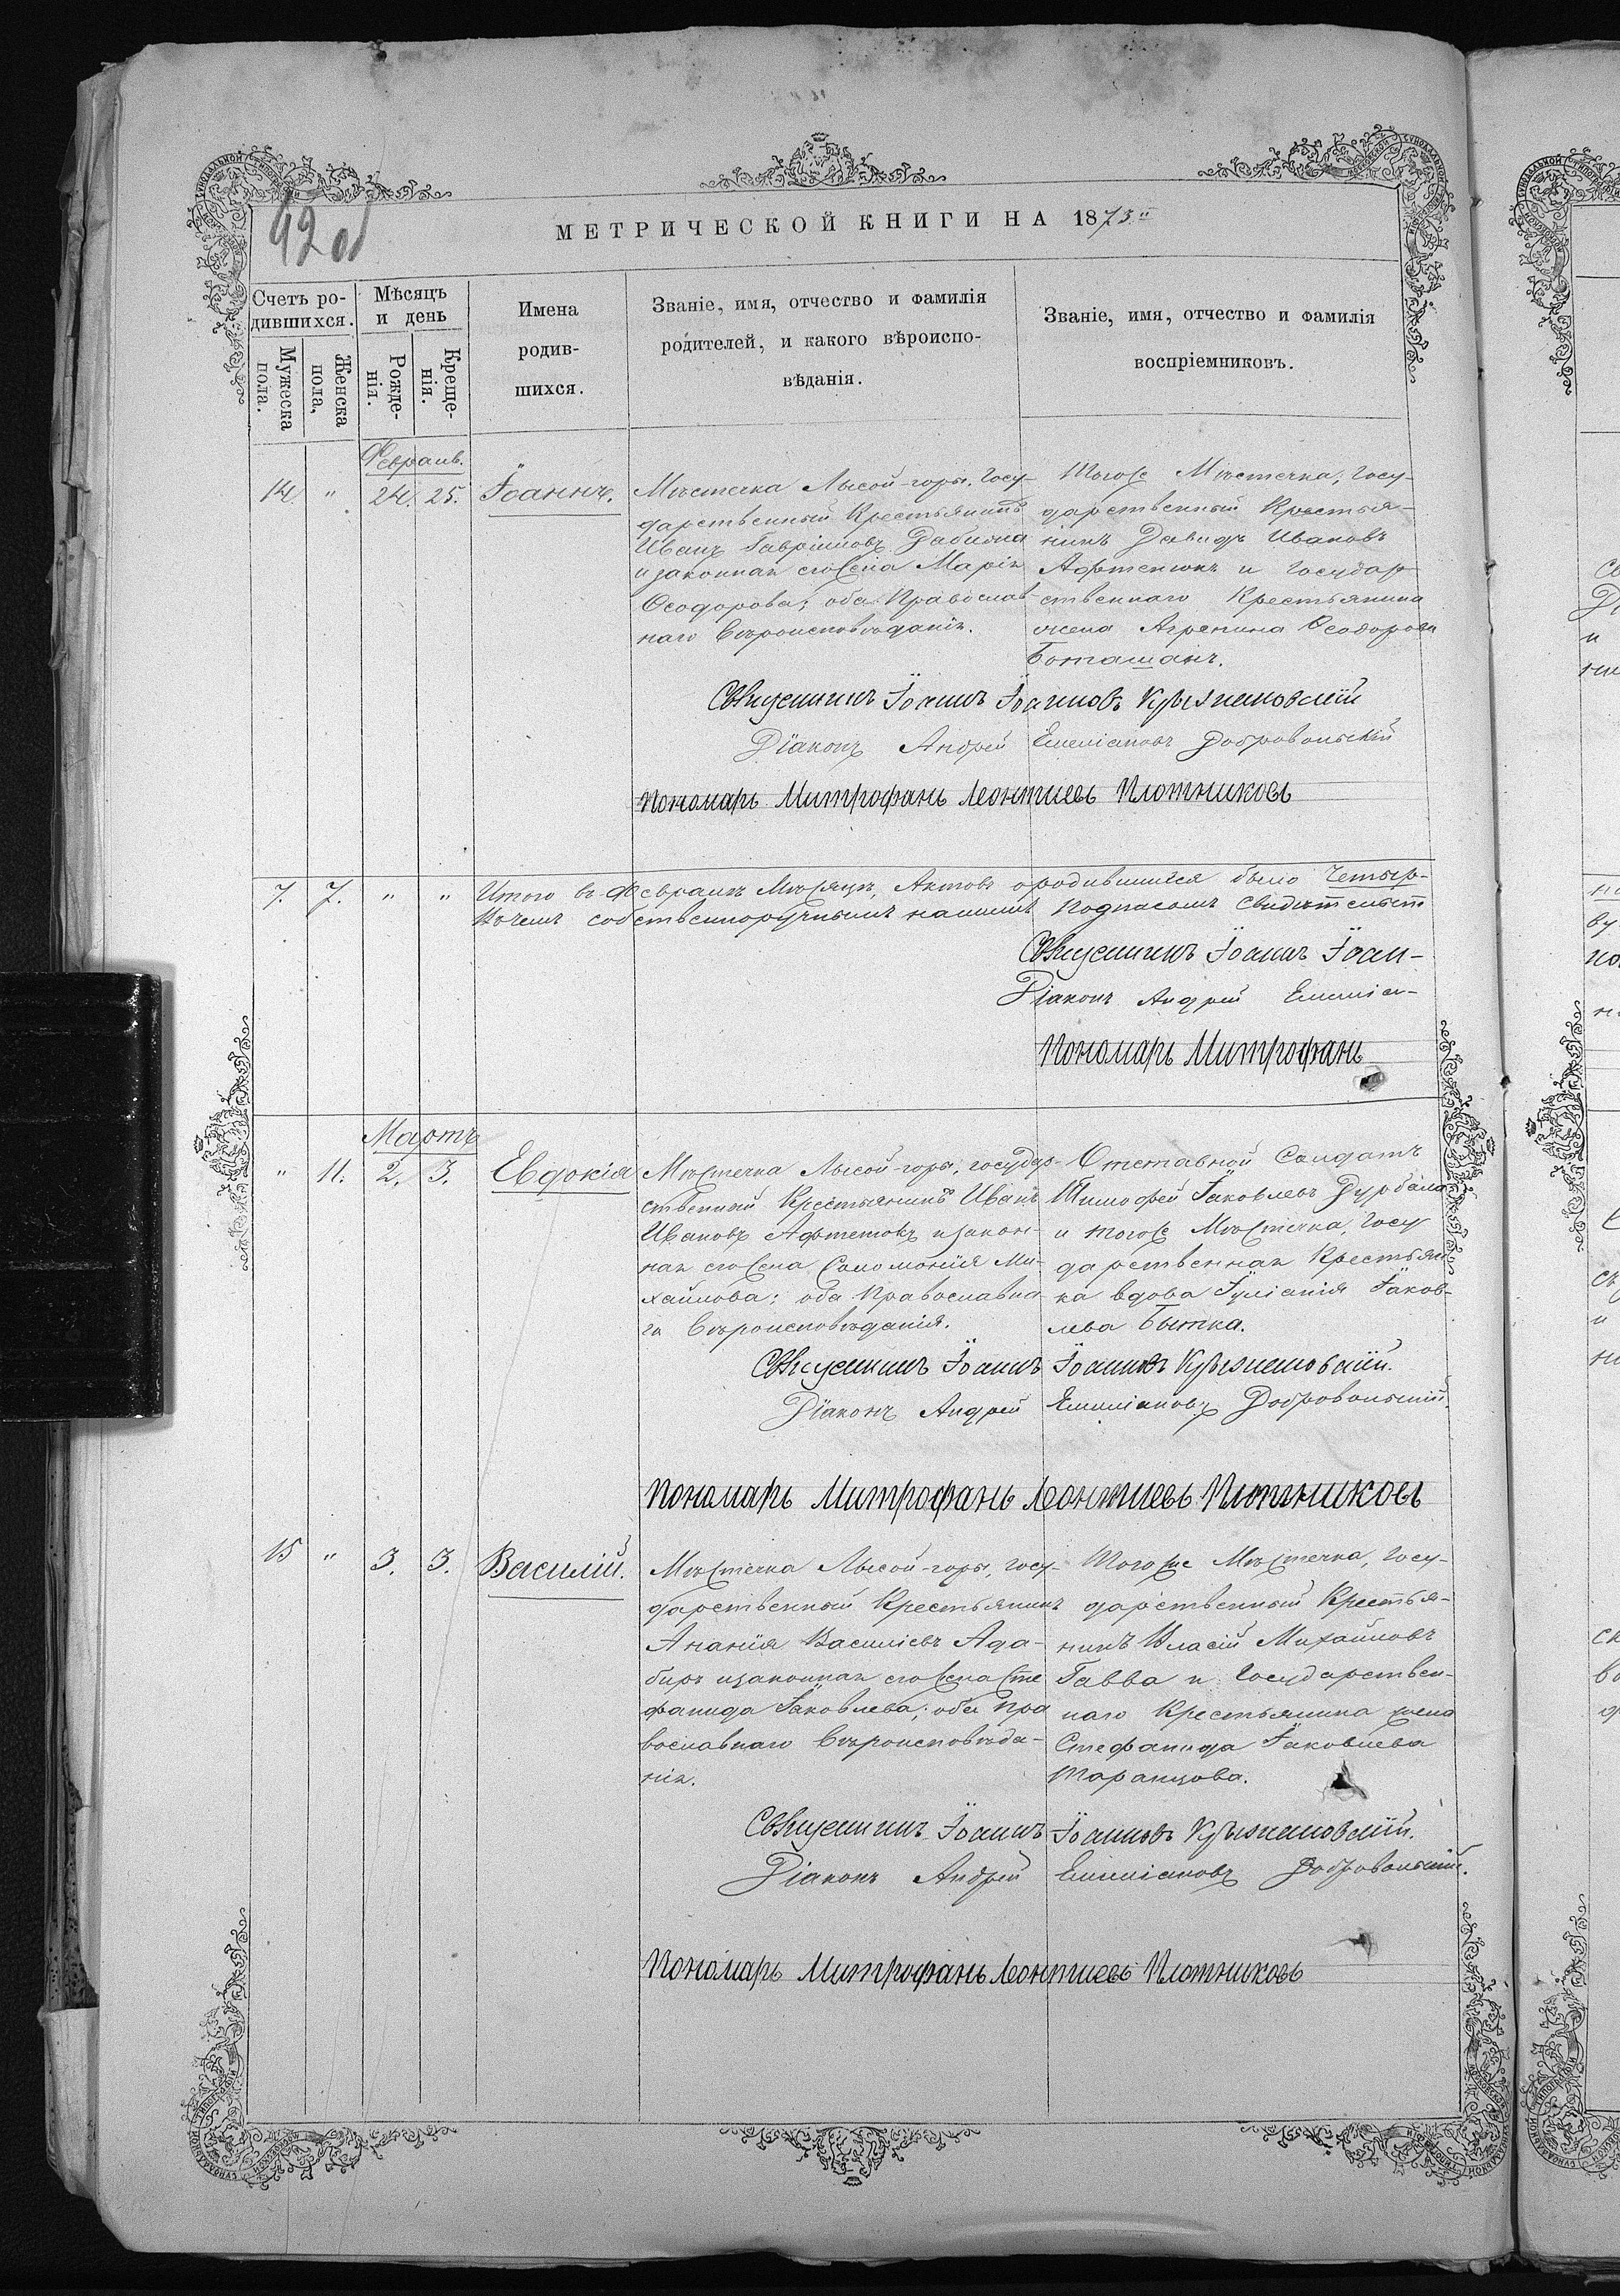 92 об
МЕТРИЧЕСКОЙ КНИГИ НА 1873й
Счетъ родившихся.
Мужеска пола.
Женска пола,
Мѣсяцъ и день
Рожденія.
Крещенія.
Имена родившихся.
Званіе, имя, отчество и фамилія
родителей, и какого вѣроиспо-
вѣданія.
Званіе, имя, отчество и фамилія
воспріемниковъ.
Февраль.
14 " 24. 25. Іоаннъ.
Мѣстечка Лысой-горы, Госу-
дарственный Крестьянинъ
Иванъ Гавріиловъ Дабижа
и законная его жена Марія
Ѳеодорова; оба Православ-
наго вѣроисповѣданія.
Тогоже Мѣстечка, Госу-
дарственный Крестья-
нинъ Давидъ Ивановъ
Афтенюкъ и Государ-
ственнаго Крестьянина
жена Агрепина Ѳеодорова
Боташанъ.
Священникъ Іоаннъ Іоанновъ Крыжановскій
Діаконъ Андрей Емеліановъ Добровольскій
Пономарь Митрофанъ Леонтиевъ Плотниковъ
7. 7. " " Итого въ Февралѣ Мѣсяцѣ, Актовъ о родившихся было Четыр-
Въ чемъ собственноручнымъ нашимъ Подписомъ Свидѣтельст
Священникъ Іоаннъ Іоан-
Діаконъ Андрей Емеліа-
Пономарь Митрофанъ
Мартъ
" 11. 2. 3. Евдокія
Мѣстечка Лысой-горы, государ-
ственный Крестьянинъ Иванъ
Ивановъ Афтеновъ и закон-
ная его жена Соломонія Ми-
хайлова; оба Православна-
го Вѣроисповѣданія.
Отставной Солдатъ
Тимофей Іаковлевъ Дурбала
и тогоже Мѣстечка, Госу
дарственная Крестьян
ка вдова Іуліанія Іаков-
лева Бытка.
Священникъ Іоаннъ Іоанновъ Крыжановскій.
Діаконъ Андрей Емеліановъ Добровольскій.
Пономарь Митрофанъ Леонтиевъ Плотниковъ
15 " 3. 3. Василій.
Мѣстечка Лысой-горы, Госу-
дарственный Крестьянинъ
Ананія Василіевъ Ада-
биръ и законная его жена Сте
фанида Іаковлева; оба Пра
вославнаго Вѣроисповѣда-
нія.
Тогоже Мѣстечка, Госу-
дарственный Крестья-
нинъ Власій Михайловъ
Гавва и Государствен-
наго Крестьянина жена
Стефанида Іаковлева
Таранцова.
Священникъ Іоаннъ Іоанновъ Крыжановскій.
Діаконъ Андрей Емеліановъ Добровольскій.
Пономарь Митрофанъ Леонтиевъ Плотниковъ